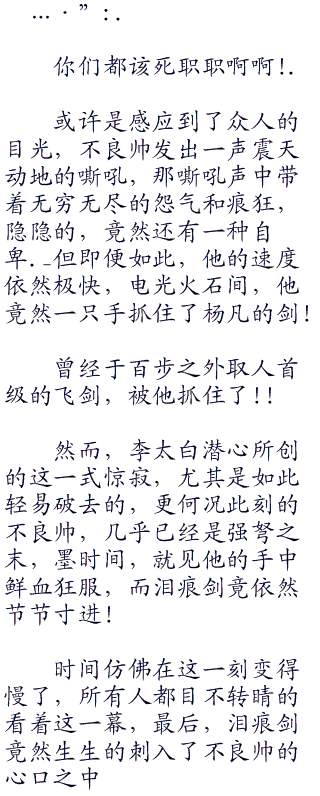 … · ” : .
你们都该死职职啊啊!.
或许是感应到了众人的
目光，不良帅发出一声震天
动地的嘶吼，那嘶吼声中带
着无穷无尽的怨气和痕狂，
隐隐的，竟然还有一种自
卑._但即便如此，他的速度
依然极快，电光火石间，他
竟然一只手抓住了杨凡的剑！
曾经于百步之外取人首
级的飞剑，被他抓住了!!
然而，李太白潜心所创
的这一式惊寂，尤其是如此
轻易破去的，更何况此刻的
不良帅，几乎已经是强弩之
末，墨时间，就见他的手中
鲜血狂服，而泪痕剑竟依然
节节寸进！
时间仿佛在这一刻变得
慢了，所有人都目不转睛的
看着这一幕，最后，泪痕剑
竟然生生的刺入了不良帅的
心口之中